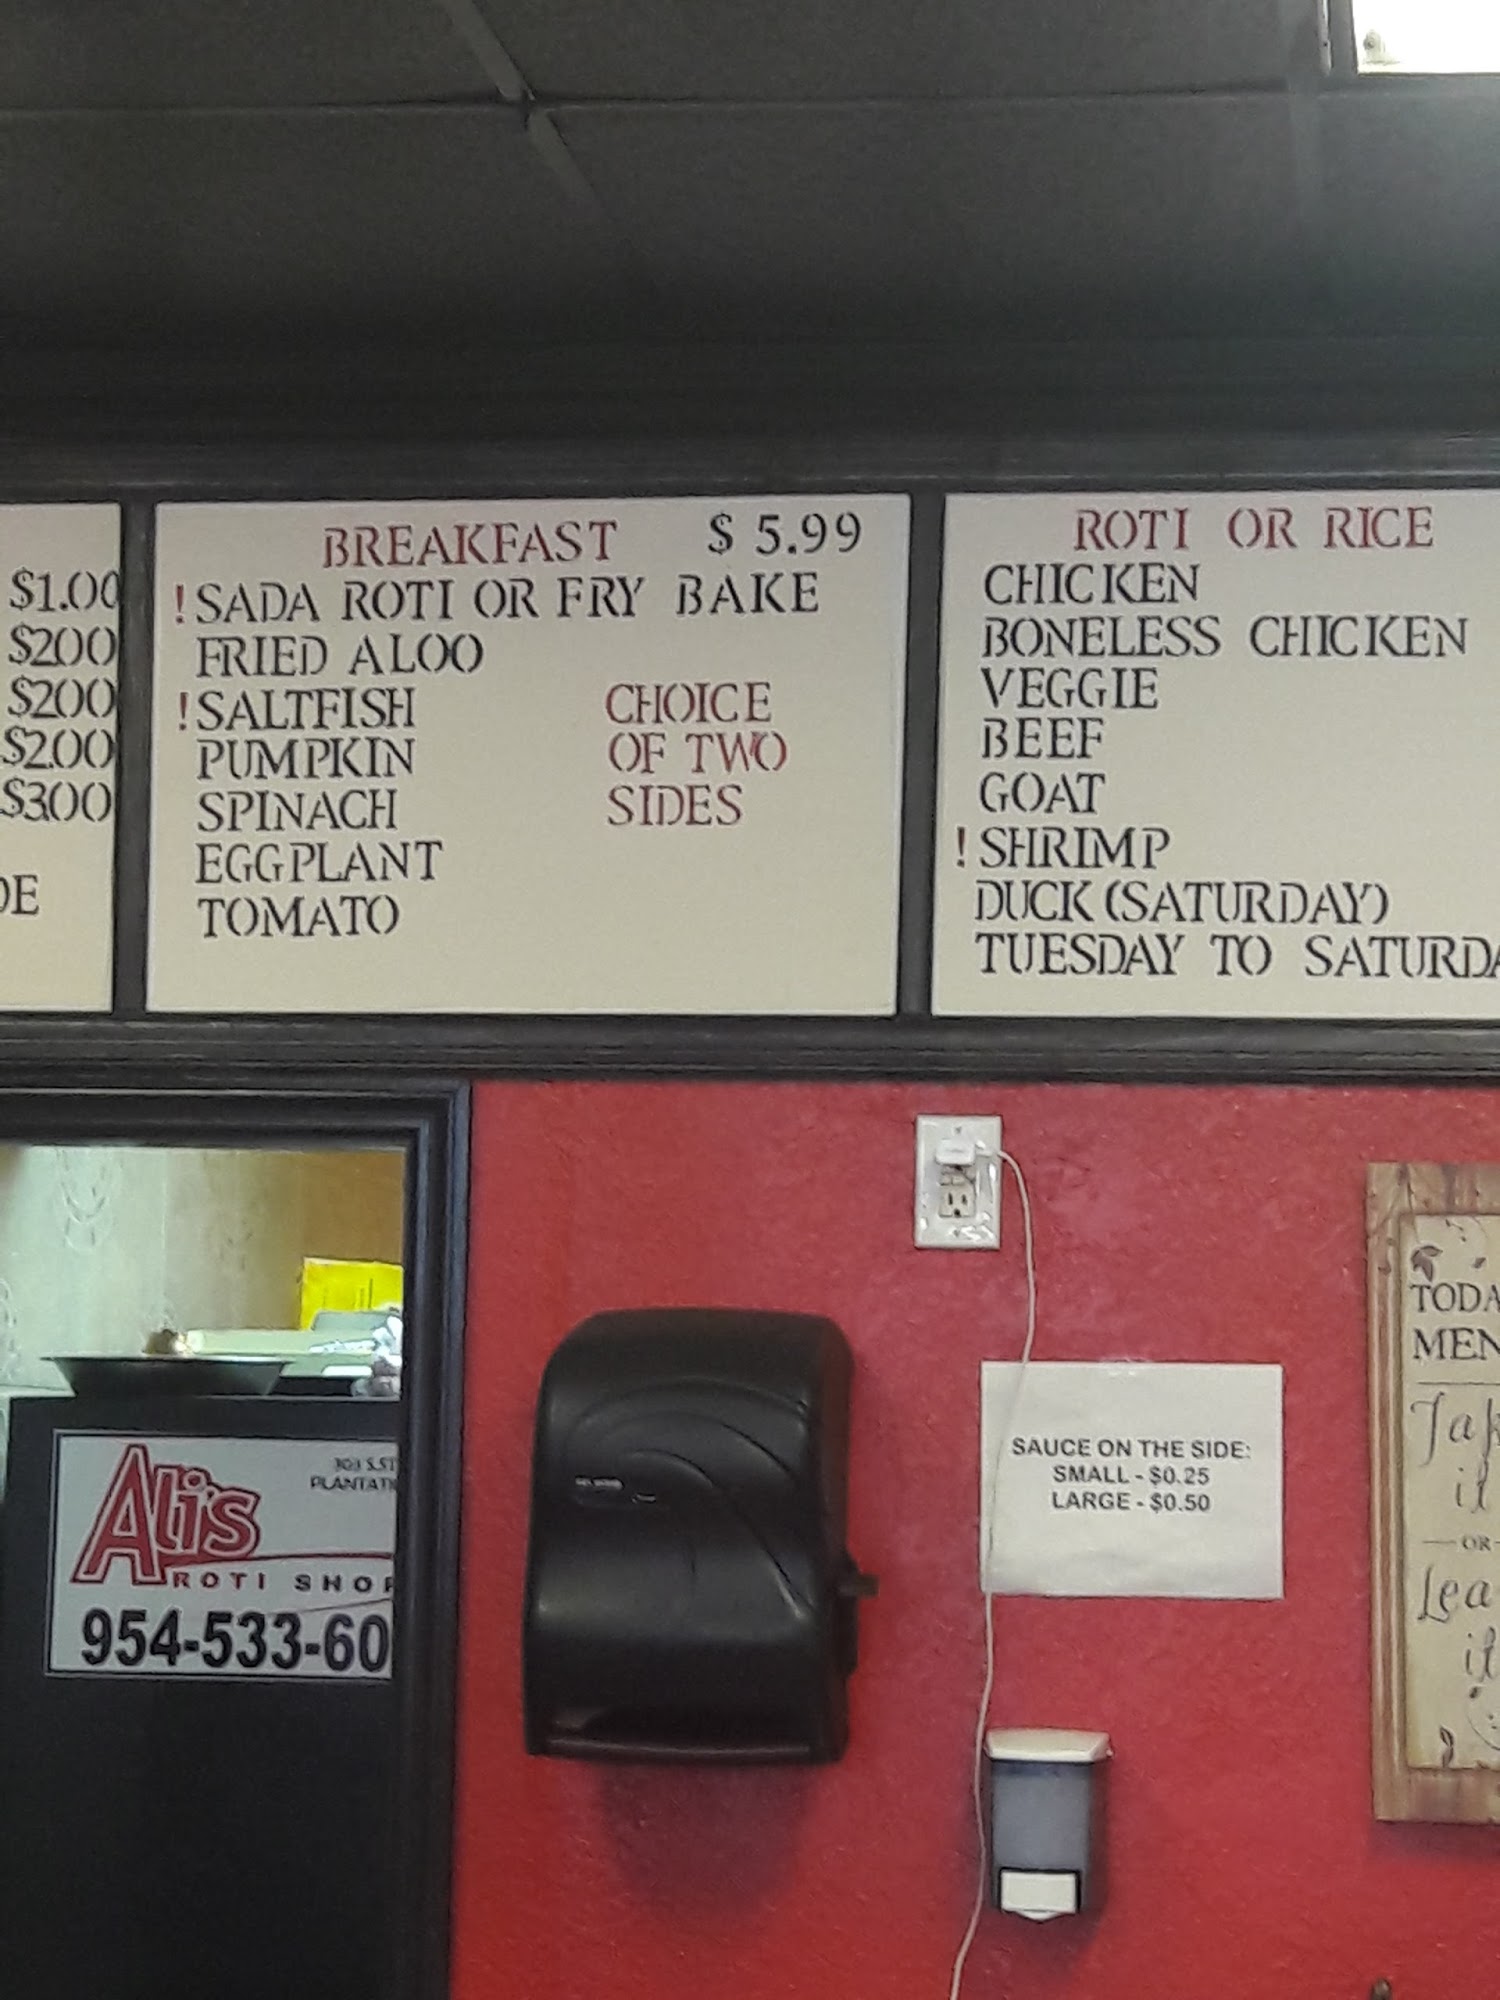 $1.00
$200
$200
$2.00
$3.00
DE
BREAKFAST $ 5.99
! SADA ROTI OR FRY BAKE
FRIED ALOO
! SALTFISH
PUMPKIN
SPINACH
EGGPLANT
TOMATO
CHOICE
OF TWO
SIDES
ROTI OR RICE
CHICKEN
BONELESS CHICKEN
VEGGIE
BEEF
GOAT
! SHRIMP
DUCK (SATURDAY)
TUESDAY TO SATURDA
Ali's
ROTI SHOP
954-533-60
SAUCE ON THE SIDE:
SMALL - $0.25
LARGE - $0.50
TODA
MEN
Tak
it
OR
Lea
it